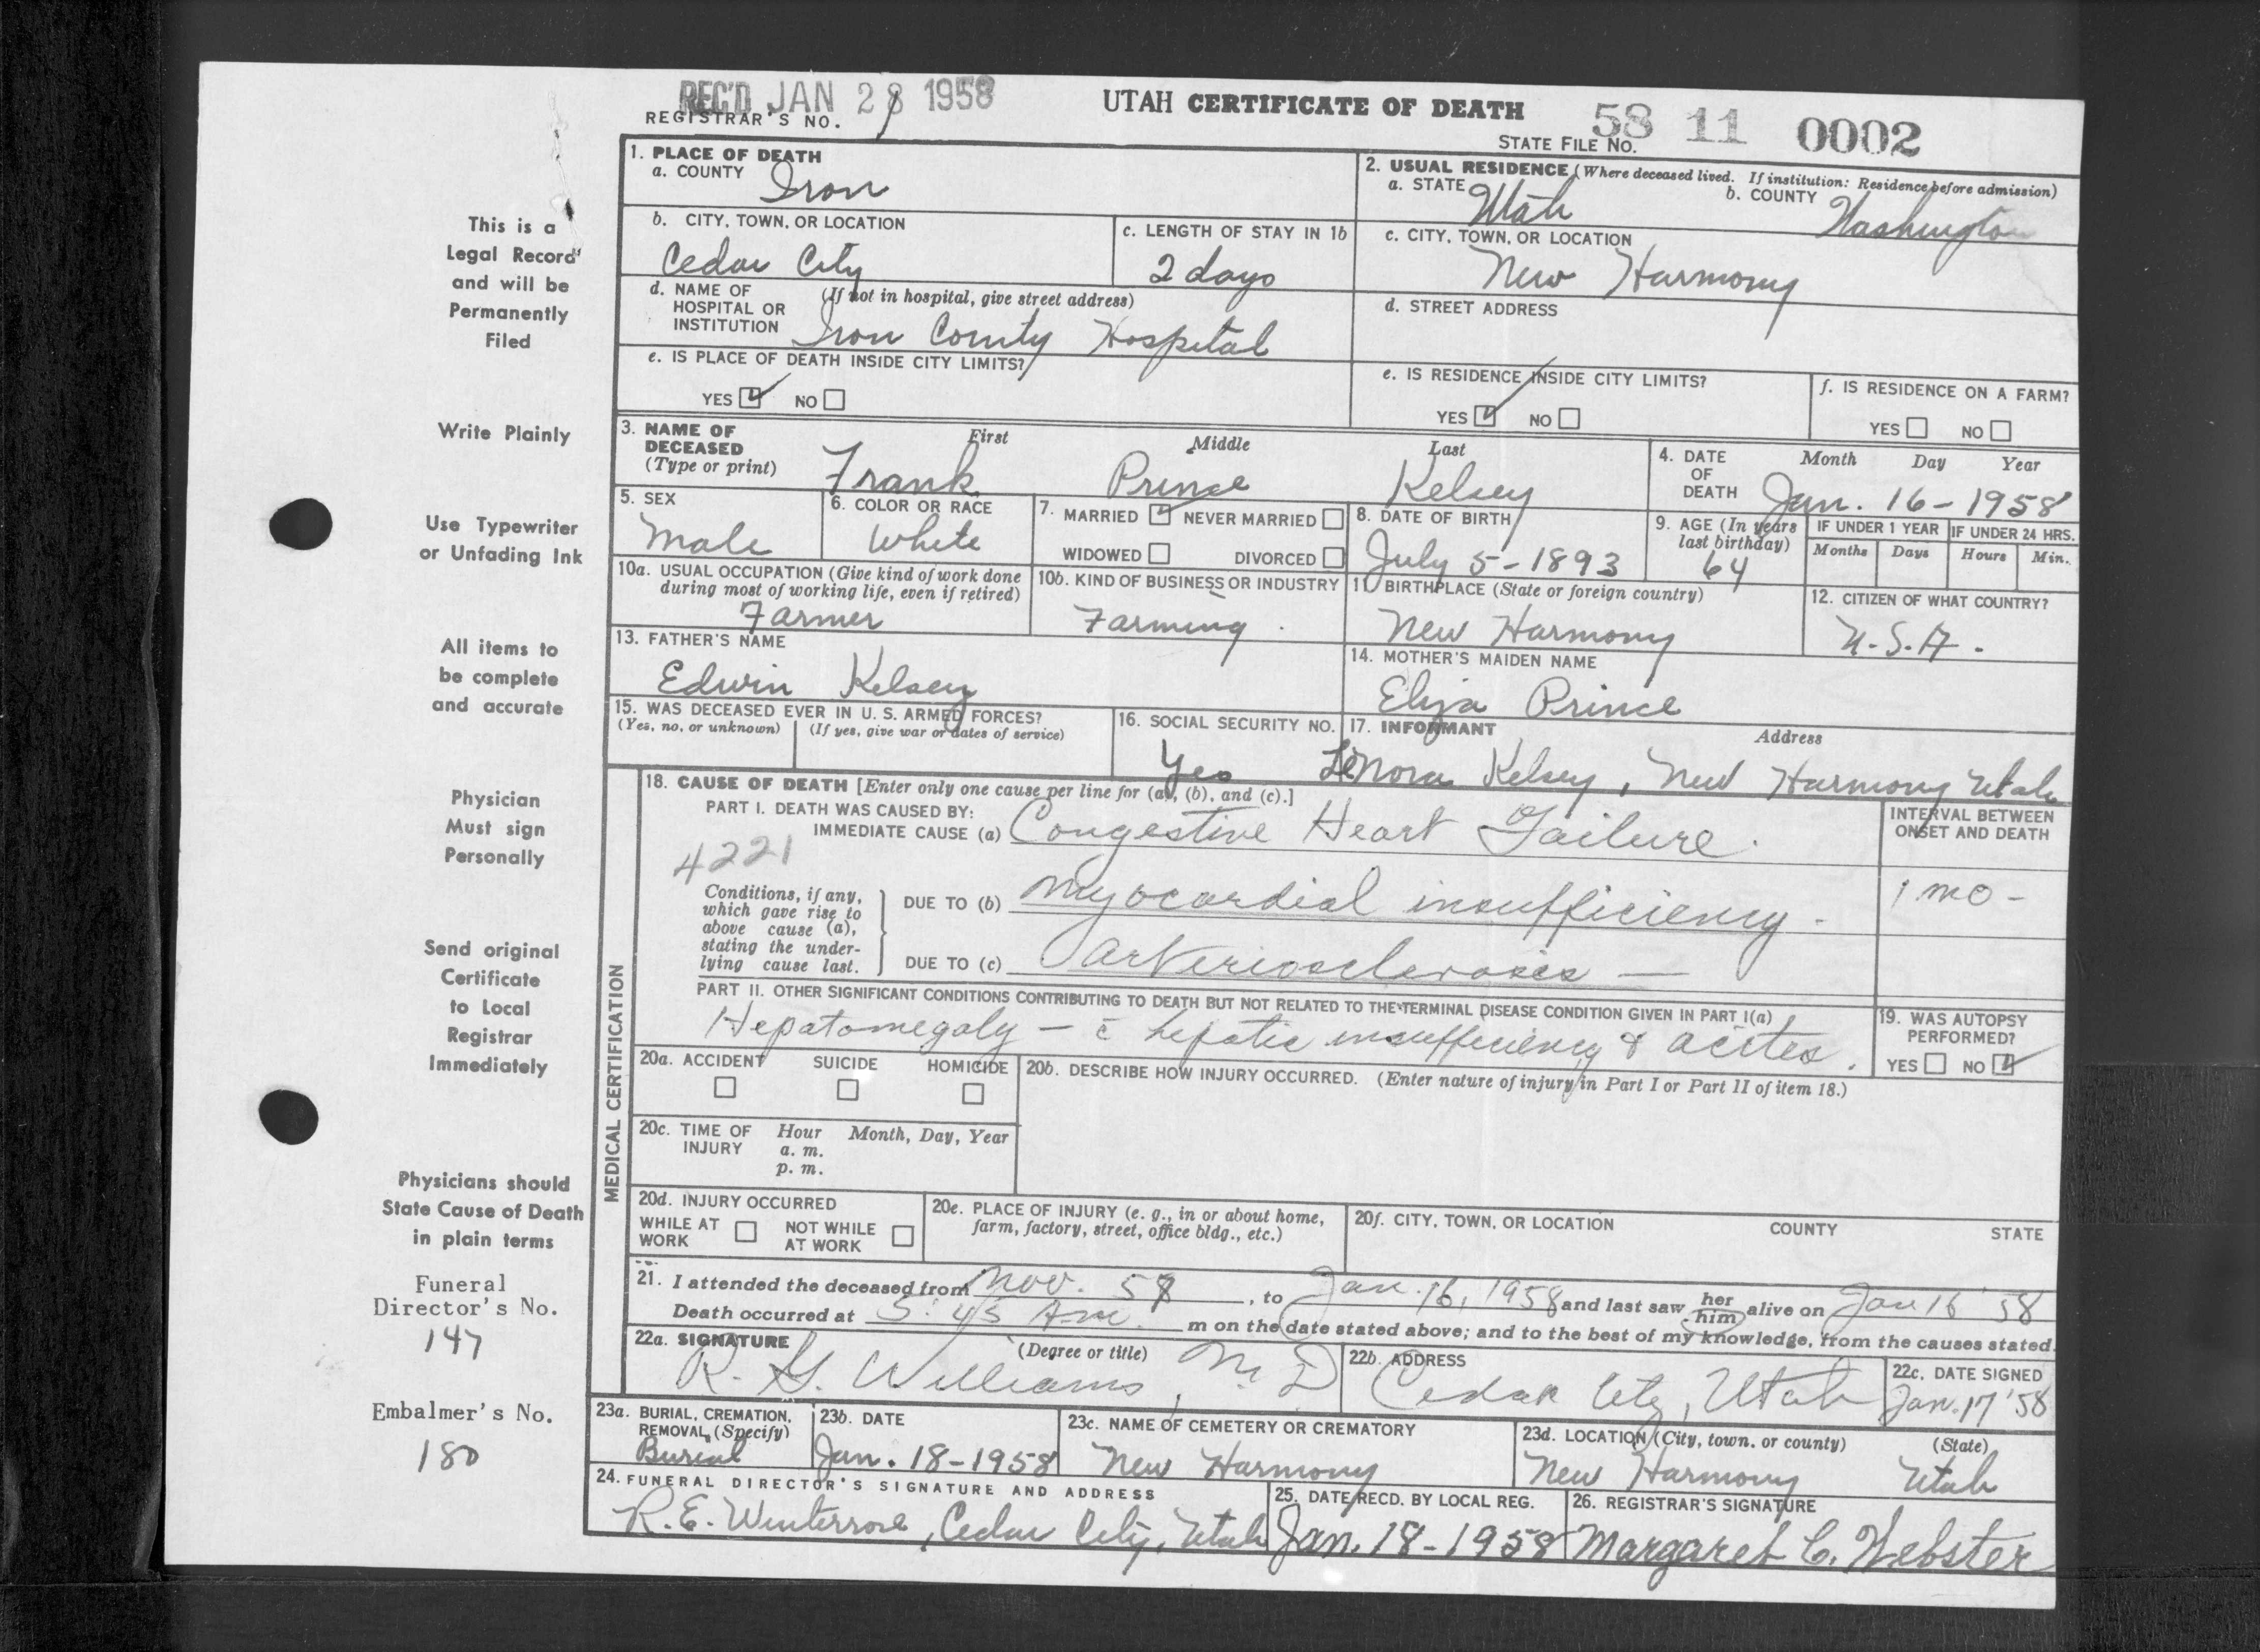 REC'D JAN 28 1958
UTAH CERTIFICATE OF DEATH
58 11 0002
REGISTRAR'S NO.
STATE FILE NO.
This is a
Legal Record
and will be
Permanently
Filed
Write Plainly
Use Typewriter
or Unfading Ink
All items to
be complete
and accurate
Physician
Must sign
Personally
Send original
Certificate
to Local
Registrar
Immediately
Physicians should
State Cause of Death
in plain terms
Funeral
Director's No.
147
Embalmer's No.
180
1. PLACE OF DEATH
a. COUNTY Iron
2. USUAL RESIDENCE (Where deceased lived. If institution: Residence before admission)
a. STATE Utah b. COUNTY Washington
b. CITY, TOWN, OR LOCATION
Cedar City
c. LENGTH OF STAY IN 1b
2 days
c. CITY, TOWN, OR LOCATION
New Harmony
d. NAME OF HOSPITAL OR INSTITUTION (If not in hospital, give street address)
Iron County Hospital
d. STREET ADDRESS
e. IS PLACE OF DEATH INSIDE CITY LIMITS?
YES NO
e. IS RESIDENCE INSIDE CITY LIMITS?
YES NO
f. IS RESIDENCE ON A FARM?
YES NO
3. NAME OF DECEASED (Type or print)
First Middle Last
Frank Prince Kelsey
4. DATE OF DEATH Month Day Year
Jan. 16-1958
5. SEX
Male
6. COLOR OR RACE
White
7. MARRIED NEVER MARRIED
WIDOWED DIVORCED
8. DATE OF BIRTH
July 5-1893
9. AGE (In years last birthday)
64
IF UNDER 1 YEAR IF UNDER 24 HRS.
Months Days Hours Min.
10a. USUAL OCCUPATION (Give kind of work done during most of working life, even if retired)
Farmer
10b. KIND OF BUSINESS OR INDUSTRY
Farming
11. BIRTHPLACE (State or foreign country)
New Harmony
12. CITIZEN OF WHAT COUNTRY?
U.S.A.
13. FATHER'S NAME
Edwin Kelsey
14. MOTHER'S MAIDEN NAME
Eliza Prince
15. WAS DECEASED EVER IN U. S. ARMED FORCES?
(Yes, no, or unknown) (If yes, give war or dates of service)
16. SOCIAL SECURITY NO.
Yes
17. INFORMANT Address
LeNora Kelsey, New Harmony Utah
MEDICAL CERTIFICATION
18. CAUSE OF DEATH [Enter only one cause per line for (a), (b), and (c).]
PART I. DEATH WAS CAUSED BY:
IMMEDIATE CAUSE (a) Congestive Heart Failure.
INTERVAL BETWEEN ONSET AND DEATH
4221
Conditions, if any, which gave rise to above cause (a), stating the underlying cause last.
DUE TO (b) Myocardial insufficiency -
1 mo -
DUE TO (c) Arteriosclerosis —
PART II. OTHER SIGNIFICANT CONDITIONS CONTRIBUTING TO DEATH BUT NOT RELATED TO THE TERMINAL DISEASE CONDITION GIVEN IN PART I(a)
Hepatomegaly - c̄ hepatic insufficiency & acites.
19. WAS AUTOPSY PERFORMED?
YES NO
20a. ACCIDENT SUICIDE HOMICIDE
20b. DESCRIBE HOW INJURY OCCURRED. (Enter nature of injury in Part I or Part II of item 18.)
20c. TIME OF INJURY Hour Month, Day, Year
a. m.
p. m.
20d. INJURY OCCURRED
WHILE AT WORK NOT WHILE AT WORK
20e. PLACE OF INJURY (e. g., in or about home, farm, factory, street, office bldg., etc.)
20f. CITY, TOWN, OR LOCATION COUNTY STATE
21. I attended the deceased from Nov. 57, to Jan. 16, 1958 and last saw her him alive on Jan 16 '58
Death occurred at 5:45 Am. m on the date stated above; and to the best of my knowledge, from the causes stated.
22a. SIGNATURE (Degree or title)
R. G. Williams, M.D
22b. ADDRESS
Cedar City, Utah
22c. DATE SIGNED
Jan. 17 '58
23a. BURIAL, CREMATION, REMOVAL, (Specify)
Burial
23b. DATE
Jan. 18-1958
23c. NAME OF CEMETERY OR CREMATORY
New Harmony
23d. LOCATION (City, town, or county) (State)
New Harmony Utah
24. FUNERAL DIRECTOR'S SIGNATURE AND ADDRESS
R.E. Winterrose, Cedar City, Utah
25. DATE RECD. BY LOCAL REG.
Jan. 18-1958
26. REGISTRAR'S SIGNATURE
Margaret C. Webster